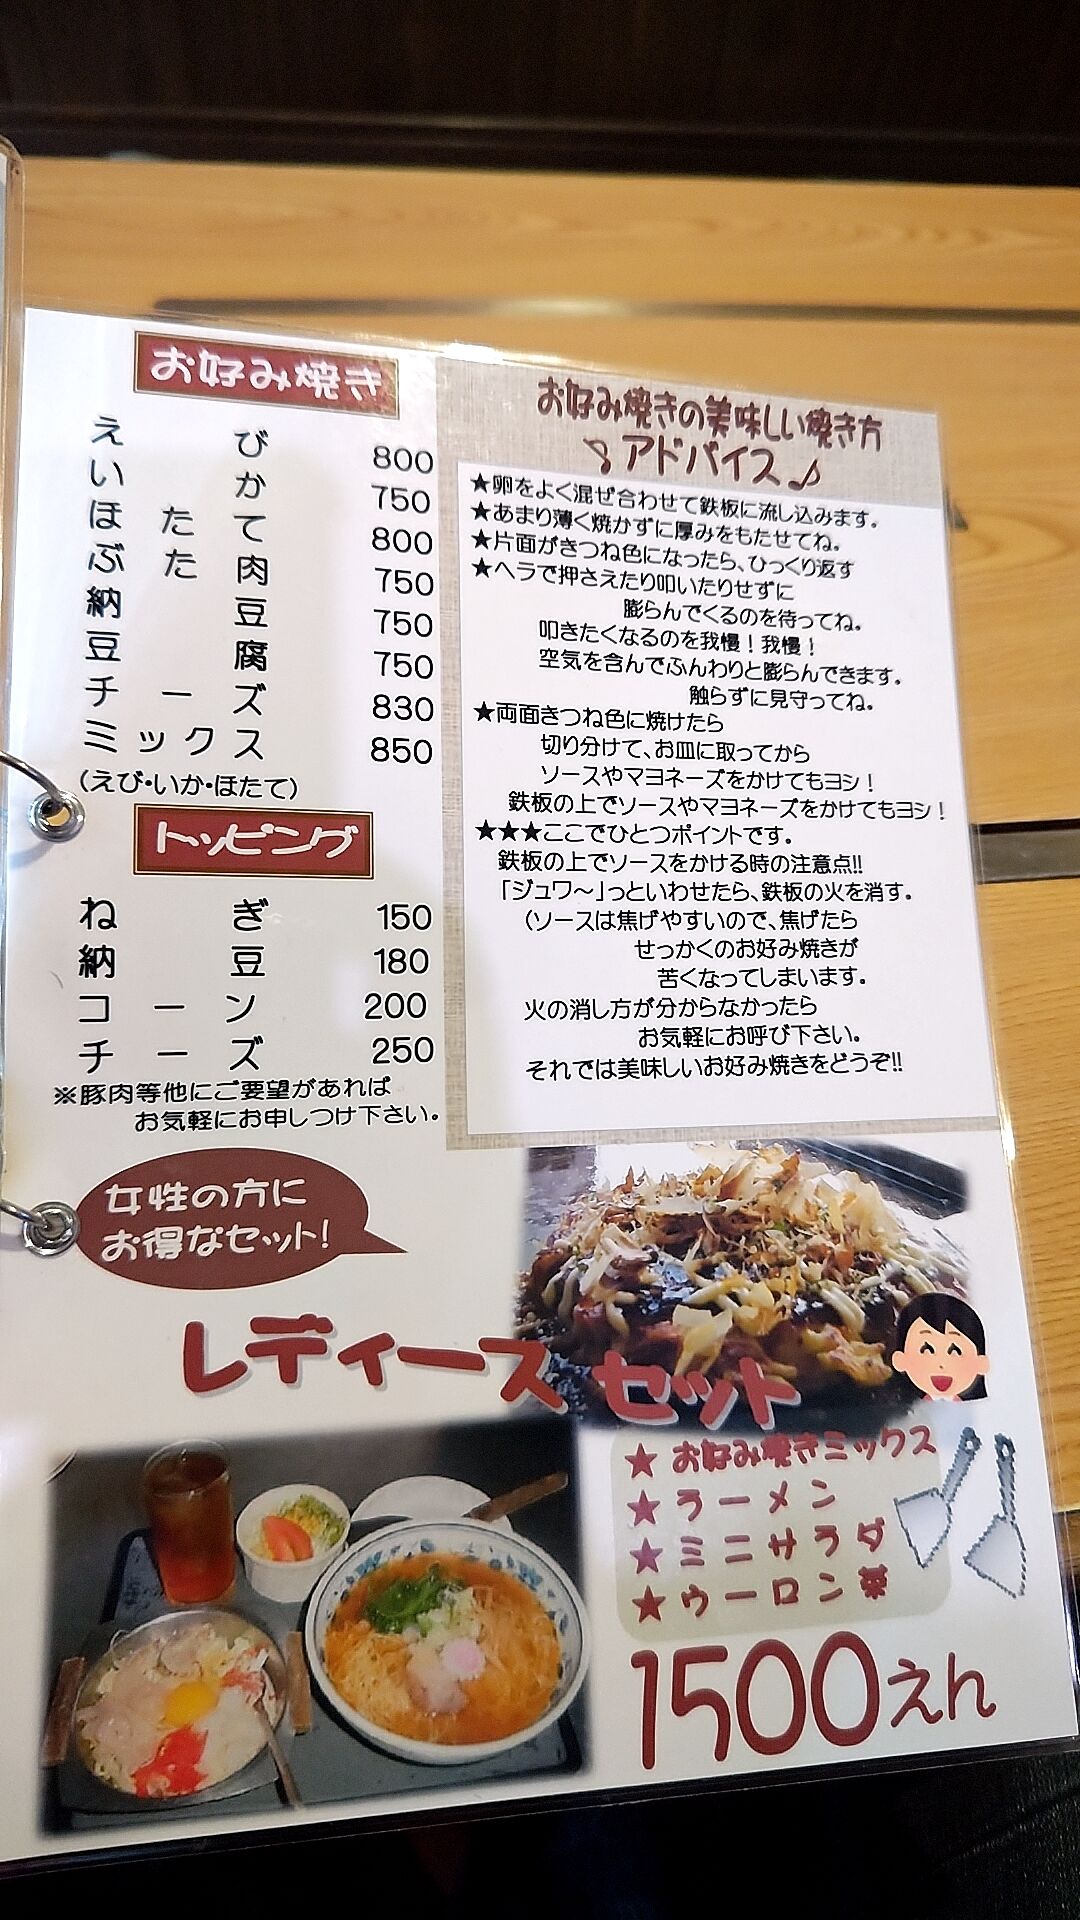 お好み焼き
えび 800
いか 750
ほたて 800
ぶた肉 750
納豆 750
豆腐 750
チーズ 830
ミックス 850
(えび・いか・ほたて)
トッピング
ねぎ 150
納豆 180
コーン 200
チーズ 250
※豚肉等他にご要望があれば
お気軽にお申しつけ下さい。
お好み焼きの美味しい焼き方
アドバイス♪
★卵をよく混ぜ合わせて鉄板に流し込みます。
★あまり薄く焼かずに厚みをもたせてね。
★片面がきつね色になったら、ひっくり返す
★ヘラで押さえたり叩いたりせずに
膨らんでくるのを待ってね。
叩きたくなるのを我慢!我慢!
空気を含んでふんわりと膨らんできます。
触らずに見守ってね。
★両面きつね色に焼けたら
切り分けて、お皿に取ってから
ソースやマヨネーズをかけてもヨシ!
鉄板の上でソースやマヨネーズをかけてもヨシ!
★★★ここでひとつポイントです。
鉄板の上でソースをかける時の注意点!!
「ジュワ〜」っといわせたら、鉄板の火を消す。
(ソースは焦げやすいので、焦げたら
せっかくのお好み焼きが
苦くなってしまいます。
火の消し方が分からなかったら
お気軽にお呼び下さい。
それでは美味しいお好み焼きをどうぞ!!
女性の方に
お得なセット!
レディースセット
★お好み焼きミックス
★ラーメン
★ミニサラダ
★ウーロン茶
1500えん